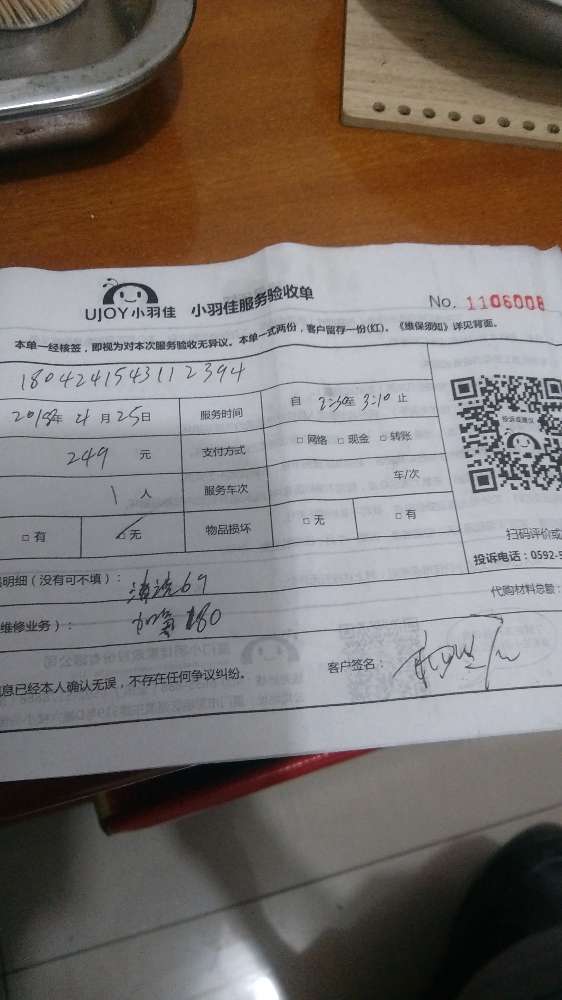 UJOY小羽佳 小羽佳服务验收单 No. 1106008
本单一经核签，即视为对本次服务验收无异议。本单一式两份，客户留存一份(红)。《维保须知》详见背面。
1804241543112394
2018年 4月 25日 服务时间 自 2:30至 3:10 止
249 元 支付方式 □ 网络 □ 现金 □ 转账
1 人 服务车次 车/次
投诉或建议
□ 有 □ 无 物品损坏 □ 无 □ 有
扫码评价或
投诉电话：0592-5
明细（没有可不填）： 清洗69
代购材料总额：
维修业务）： 180
息已经本人确认无误，不存在任何争议纠纷。 客户签名：